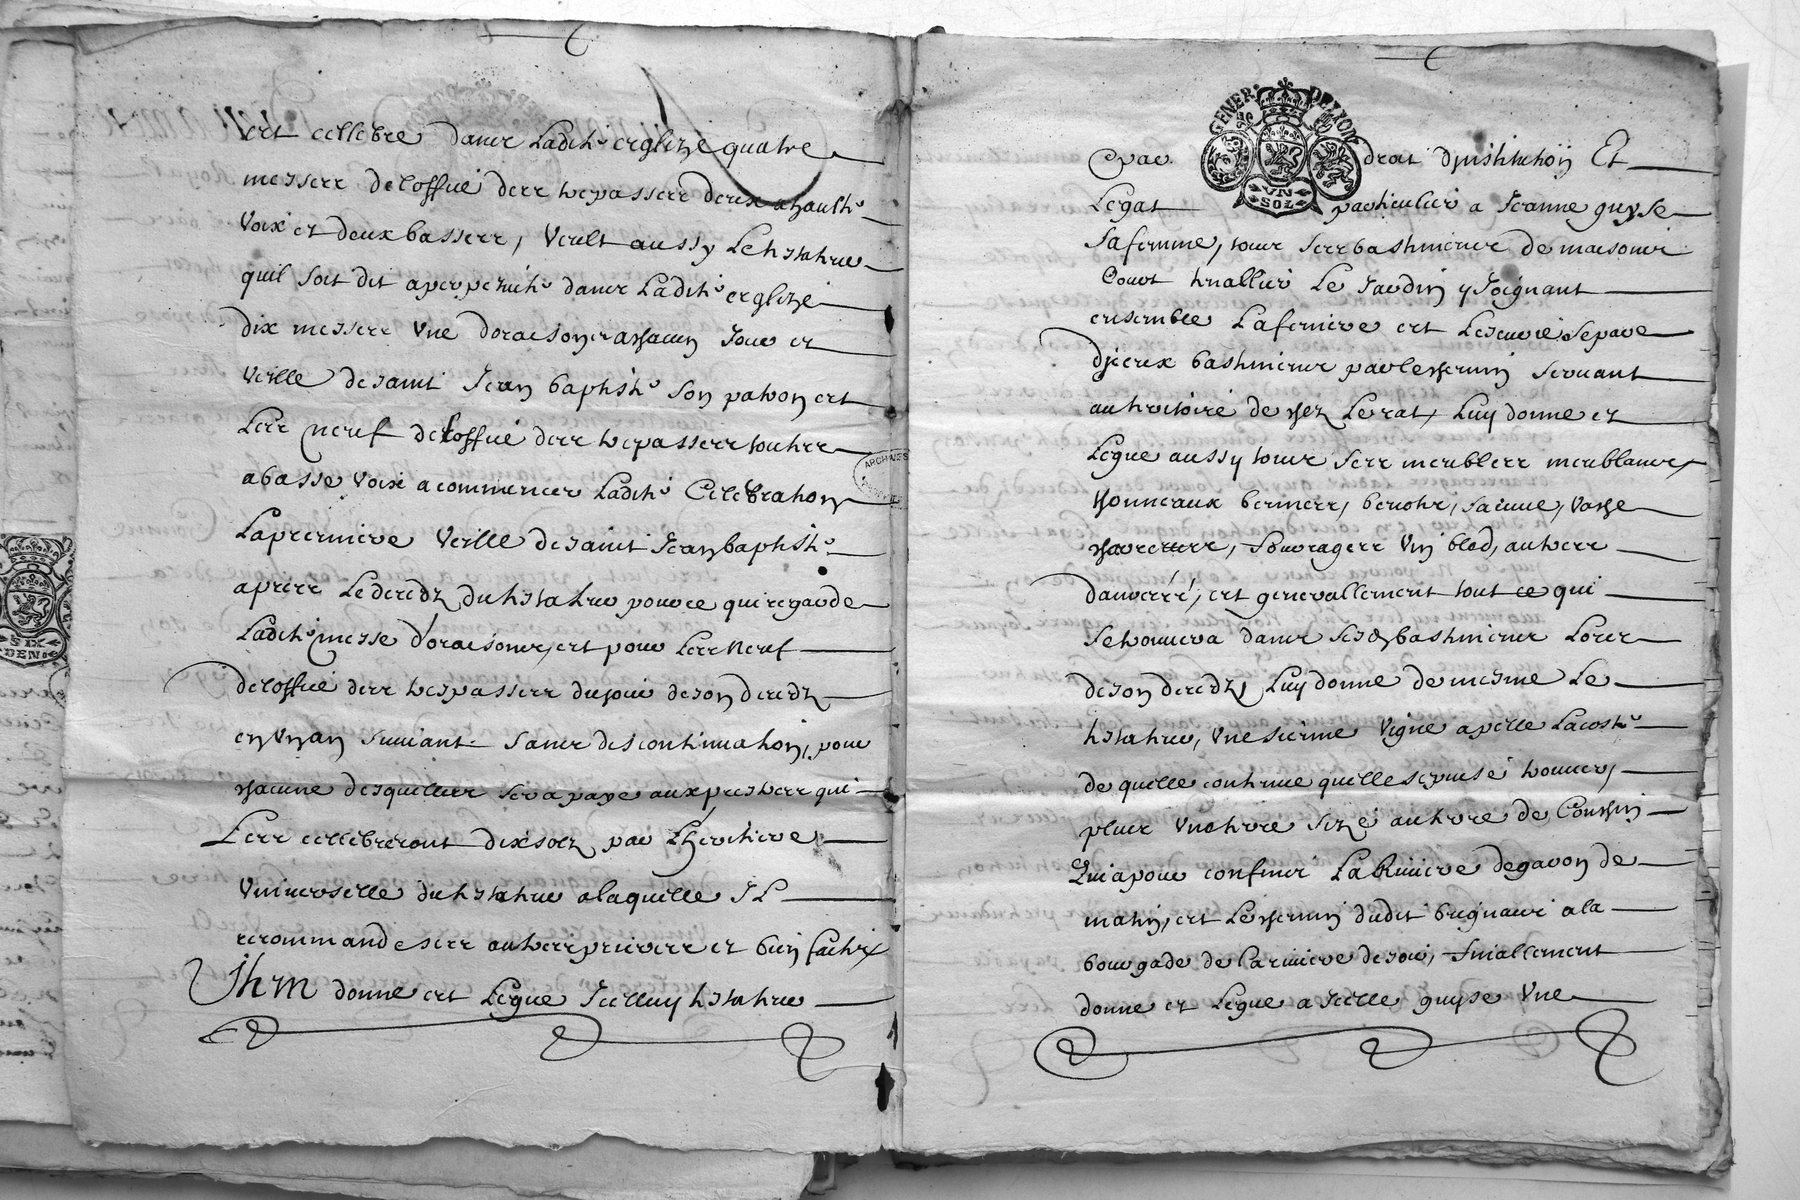 est cellebre dans Ladite esglize quatre
messes de loffice des trepasses deux a haulte
Voix et deux basses, Veult aussy Le testateur
quil soit dit a perpetuite dans Ladite esglize
dix messes Vne doraison a chacun jour et
Veille de saint Jean baptiste son patron et
Les neuf de loffice des trepasses toutes
a basse Voix a commencer Ladite Celebration
La premiere Veille de saint Jean baptiste
apres Le decedz du testateur pour ce qui regarde
Ladite messe doraisons, et pour Les Neuf
de loffice des trespasses du jour de son decedz
en Vn an suiuant sans discontinuation, pour
chacune desquelles sera paye aux prestres qui
Les cellebreront dix solz par Lheritiere
Vniuerselle du testateur a laquelle IL
recommande ses autres prieres et bien faits
Item donne et Legue Icelluy testateur
GENER DE LYON
VN SOL
Et par droit dinstitution Et
Legat particulier a Jeanne guyse
sa femme, tous ses bastimens de maison
Court et Le Jardin y Joignant
ensemble La feniere et Lescurie separe
diceux bastimens par le chemin seruant
au territoire de chez Le rat, Luy donne et
Legue aussy tous ses meubles meublans
Tonneaux bennes, benots, Vache
fourages Vin bled, autres
danrées, et generallement tout ce qui
se trouuera dans sesdz bastimens Lors
de son decedz, Luy donne de mesme Le
testateur, Vne sienne Vigne apelle Lacoste
de quelle contenue quelle se puise trouuer,
plus Vne terre size au terre de
Qui a pour confins La Riuiere de garon de
matin, et Le chemin dudit brignais a la
bourgade de La riuiere de soir, finallement
donne et Legue a Icelle guyse Vne
SIX DEN
ARCHIVES